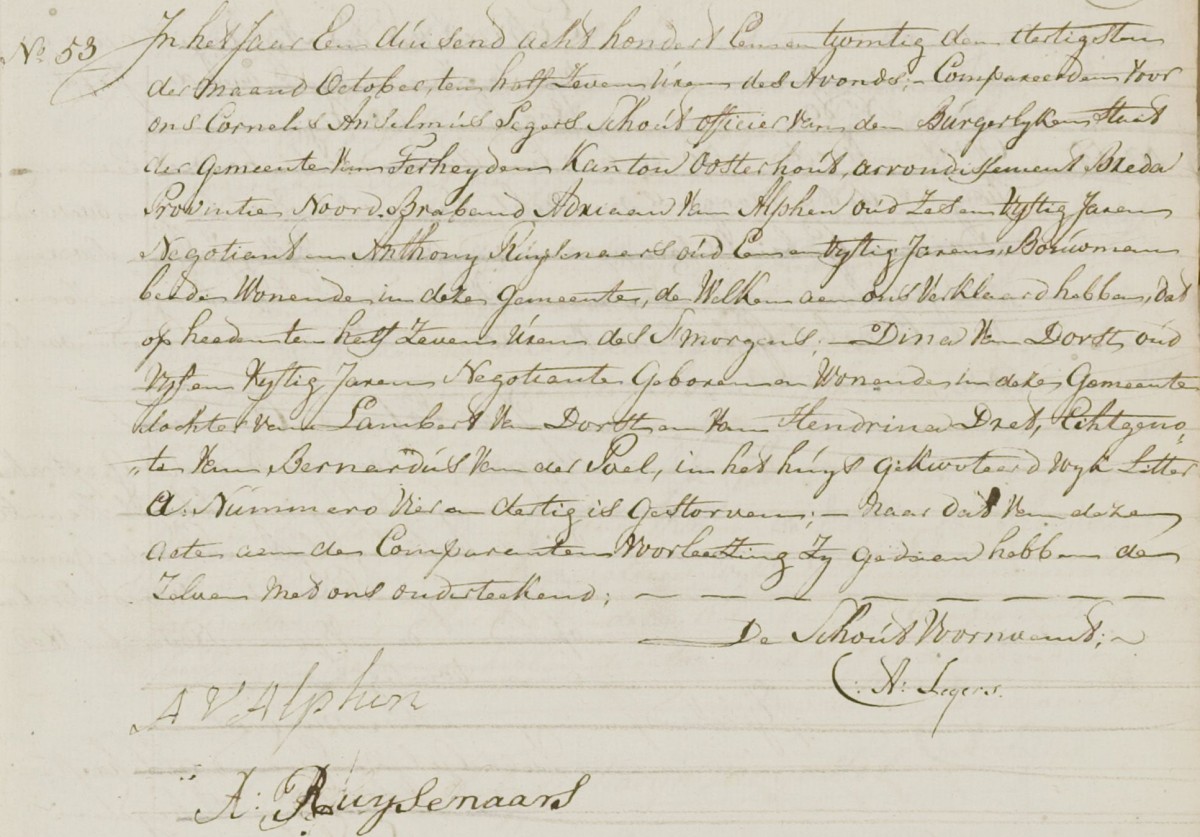 No. 53 In het Jaar Een duisend acht hondert Eenentwintig den dertigsten
der maand October, ten half Zeven Uren des Avonds;– Compareerden Voor
ons Cornelis Anselmús Segers Schout officier van den Búrgerlyken Staat
der Gemeente Van Terheyden Kanton Oosterhoút, arrondissement Breda
Provintie Noord-Braband Adriaan Van Alphen oud Zes en Vyftig Jaren
Negotiant en Anthony Rúysenaers oúd Een en Vyftig Jaren, Boúwman
beide Wonende in deze Gemeente, de Welken aen ons Verklaard hebben, dat
op heeden ten half Zeven Uren des S'morgens;– Dina Van Dorst, oúd
Vyf en Vyftig Jaren Negotiante Geboren en Wonende in deze Gemeente
dochter van Lambert Van Dorst en Van Hendrina Dret, Echtgeno„
„te Van Bernardús Van der Poel, in het húys gekwoteerd Wyk Letter
A: Núnmero Vier en dertig is Gestorven;– Naar dat Van deze
acte aen de Comparanten Voorleezing Zy gedaen hebben de
Zelven Met ons onderteekend; — — — — — — — —
De Schoút Voornoemt;–
C: A: Segers.
A V Alphen
A: Rúysenaars